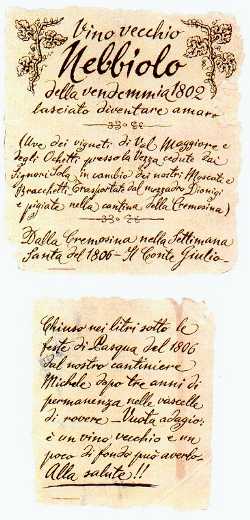 Vino vecchio
Nebbiolo
della vendemmia 1802
lasciato diventare amaro
(Uve dei vigneti di Val Maggiore e
degli Ochetti, presso la Vezza cedute dai
Signori Sola in cambio dei nostri Moscati e
Bracchetti, trasportate dal mezzadro Dionigi
e pigiate nella cantina della Cremosina)
Dalla Cremosina nella Settimana
Santa del 1806 - Il Conte Giulio -
Chiuso nei litri sotto le
feste di Pasqua del 1806
dal nostro cantiniere
Michele dopo tre anni di
permanenza nelle vascelle
di rovere - Vuota adagio:
è un vino vecchio e un
poco di fondo può averlo -
Alla salute!!